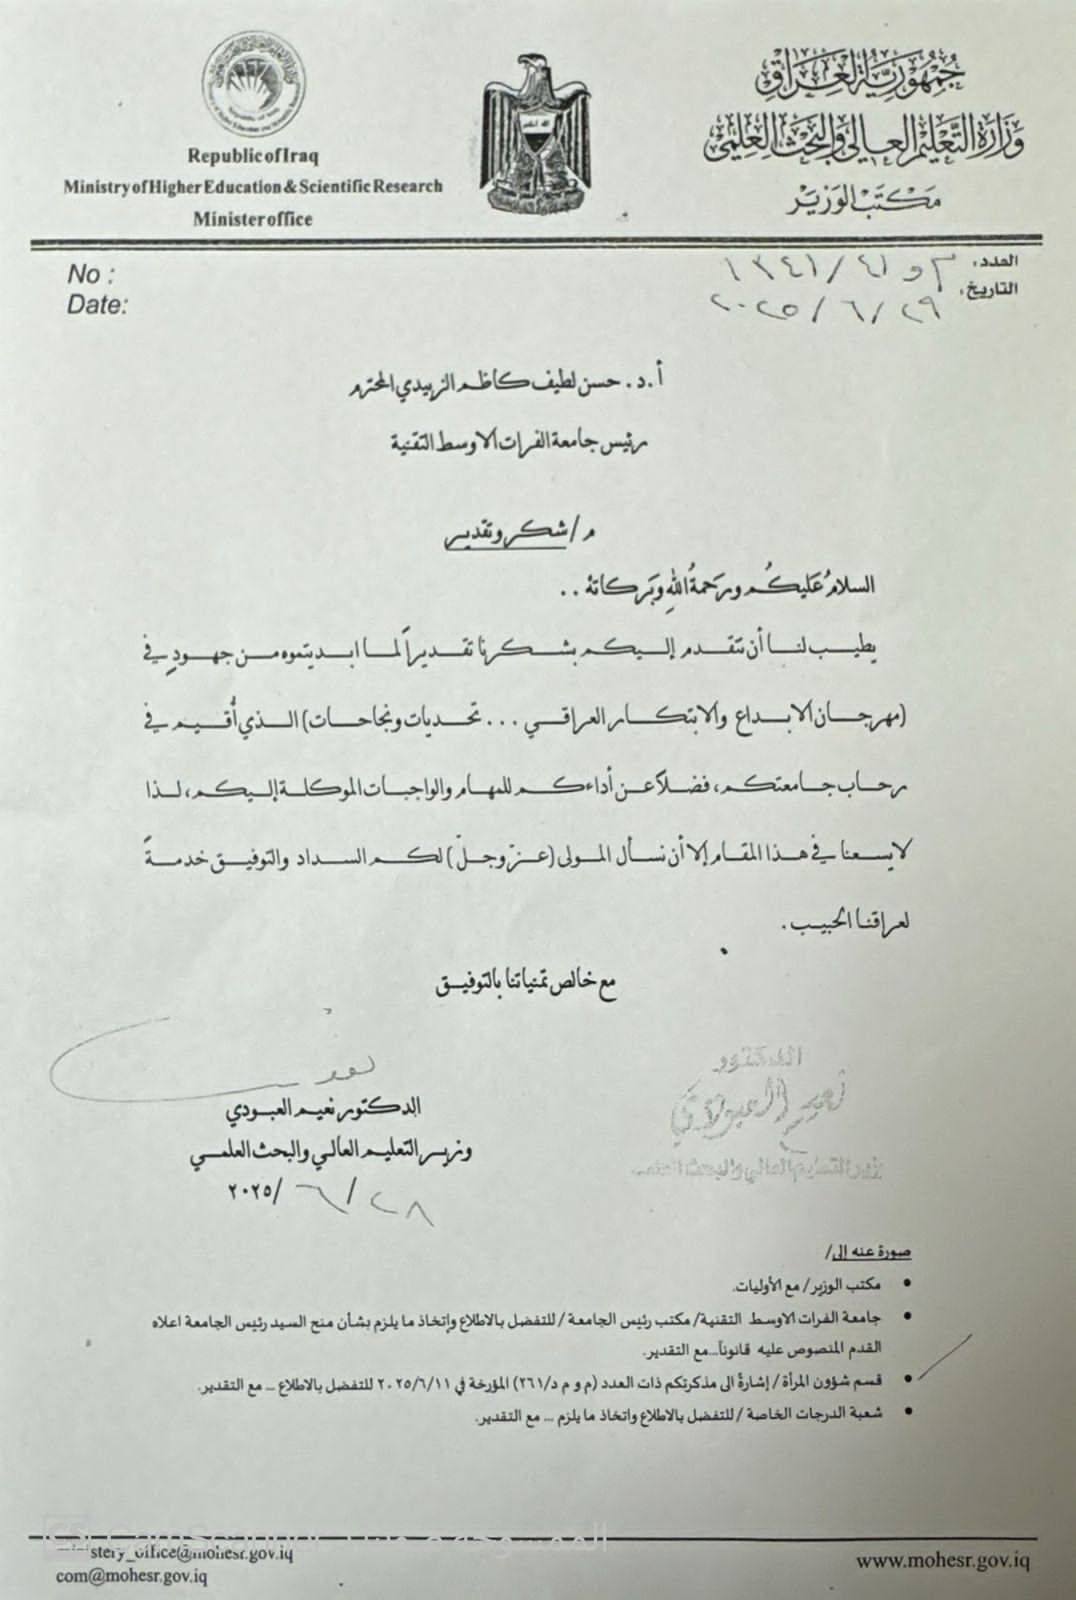 جمهورية العراق
وزارة التعليم العالي والبحث العلمي
مكتب الوزير
Republic of Iraq
Ministry of Higher Education & Scientific Research
Minister office
العدد:
التاريخ: ٢٠٢٥/٦/٢٩
No :
Date:
أ.د. حسن لطيف كاظم الزبيدي المحترم
رئيس جامعة الفرات الاوسط التقنية
م/ شكر وتقدير
السلامُ عَليكُم ورَحمةُ اللهِ وبَركاتهُ ..
يطيب لنا أن نتقدم إليكم بشكرنا تقديراً لما ابديتموه من جهودٍ في
(مهرجان الابداع والابتكار العراقي ... تحديات ونجاحات) الذي أُقيم في
رحاب جامعتكم، فضلاً عن أداءكم للمهام والواجبات الموكلة إليكم، لذا
لا يسعنا في هذا المقام إلا أن نسأل المولى (عزّ وجلّ) لكم السداد والتوفيق خدمةً
لعراقنا الحبيب.
مع خالص تمنياتنا بالتوفيق
الدكتور
نعيم العبودي
وزير التعليم العالي والبحث العلمي
الدكتور نعيم العبودي
وزير التعليم العالي والبحث العلمي
٢٠٢٥/٦/٢٨
صورة عنه إلى/
• مكتب الوزير/ مع الأوليات.
• جامعة الفرات الاوسط التقنية/ مكتب رئيس الجامعة/ للتفضل بالاطلاع وإتخاذ ما يلزم بشأن منح السيد رئيس الجامعة اعلاه
القدم المنصوص عليه قانوناً...مع التقدير.
• قسم شؤون المرأة/ إشارةً الى مذكرتكم ذات العدد (م و م د/٢٦١) المؤرخة في ٢٠٢٥/٦/١١ للتفضل بالاطلاع ... مع التقدير.
• شعبة الدرجات الخاصة/ للتفضل بالاطلاع واتخاذ ما يلزم ... مع التقدير.
stery_office@mohesr.gov.iq
com@mohesr.gov.iq
www.mohesr.gov.iq